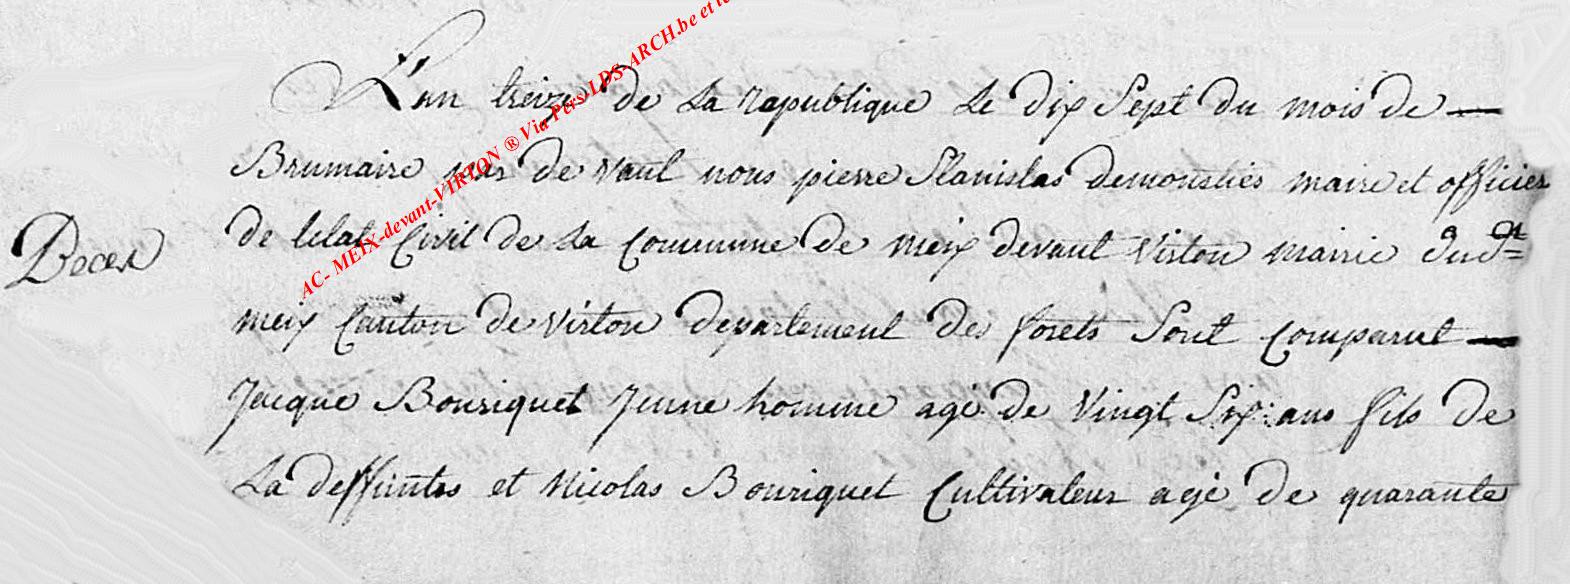 L'an treize de la republique le dix Sept du mois de —
Brumaire par de vant nous pierre Stanislas demonsties maire et officier
de letat Civil de la Commune de meix devant Virton mairie dudt
Deces
meix Canton de Virton departement des forets Sont Comparut —
Jacque Bouriquet Jeune homme agé de Vingt Six ans fils de
La deffunte et Nicolas Bouriquet Cultivateur agé de quarante
AC- MEIX-devant-VIRTON ® Via Pers-LDS-ARCH.be et